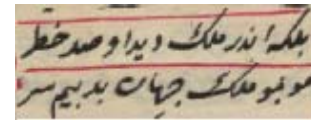 بلکه اندر ملک دیدا و صد خطر
مو بمو ملک جهان بدبیم سر